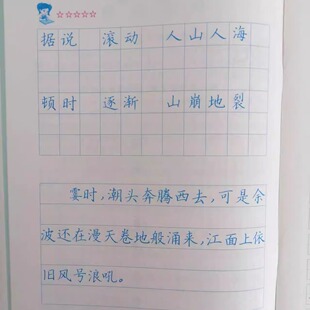 据说 滚动 人山人海
顿时 逐渐 山崩地裂
霎时,潮头奔腾西去,可是余
波还在漫天卷地般涌来,江面上依
旧风号浪吼。